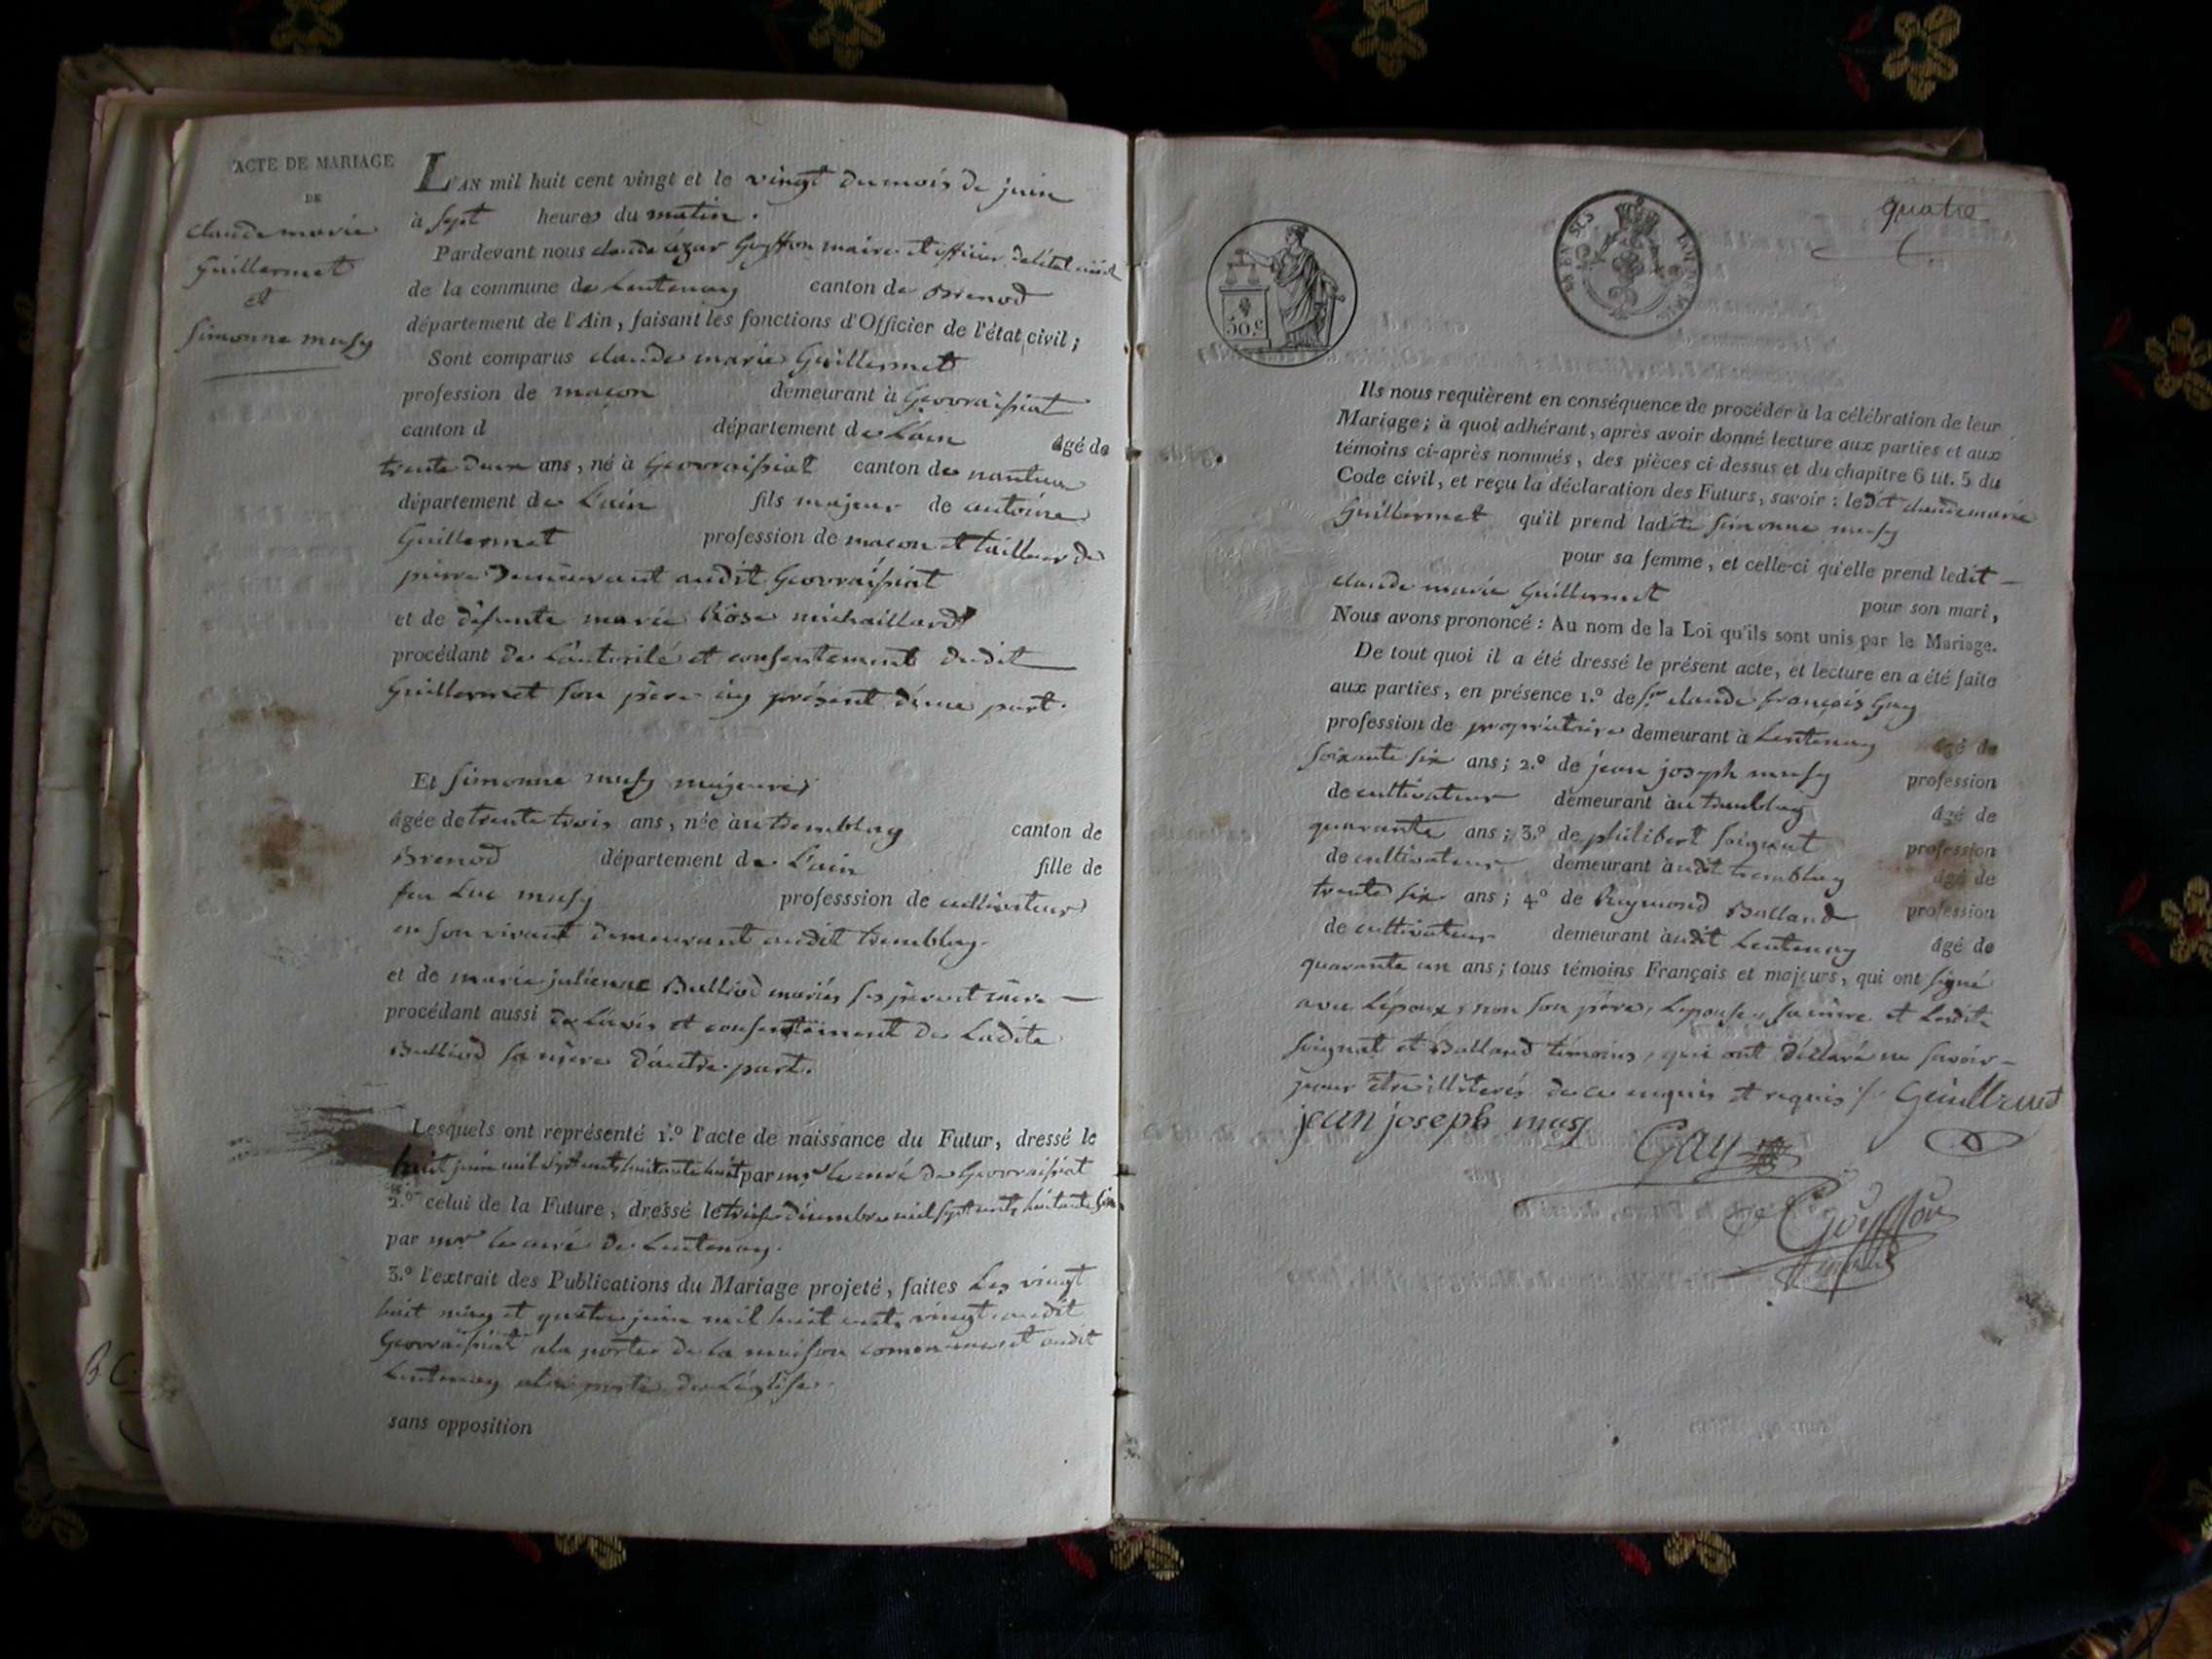 ACTE DE MARIAGE
DE
claude marie
Guillermet
et
Simonne musy
L'AN mil huit cent vingt et le vingt du mois de juin
à sept heures du matin.
Pardevant nous claude Gouffon maire et officier de létat civil
de la commune de Lentenay canton de Brenod
département de l'Ain, faisant les fonctions d'Officier de l'état civil;
Sont comparus claude marie Guillermet
profession de maçon demeurant à Geovraissiat
canton d département de Lain âgé de
trente deux ans, né à Geovraissiat canton de nantua
département de L'ain fils majeur de antoine
Guillermet profession de macon et tailleur de
pierre demeurant audit Geovraissiat
et de défunte marie Rose michaillard
procédant de L'autorité et consentement dudit
Guillermet son père icy présent d'une part.
Et Simonne musy majeure
âgée de trente trois ans, née au tremblay canton de
Brenod département de L'ain fille de
feu Luc musy professsion de cultivateur
en son vivant demeurant audit tremblay.
et de marie julienne Bulliod mariés ses père et mère
procédant aussi de L'avis et consentement de Ladite
Bulliod sa mère d'autre part.
Lesquels ont représenté 1.º l'acte de naissance du Futur, dressé le
huit juin mil sept cent huitante huit par mr le curé de Geovraissiat
2.º celui de la Future, dressé le treise décembre mil sept cent huitante six
par mr le curé de Lentenay.
3.º l'extrait des Publications du Mariage projeté, faites Les vingt
huit may et quatre juin mil huit cent vingt audit
Geovraissiat a la porte de la maison commune et audit
Lentenay a la porte de L'église
sans opposition
quatre
50.c
Ils nous requièrent en conséquence de procéder à la célébration de leur
Mariage; à quoi adhérant, après avoir donné lecture aux parties et aux
témoins ci-après nommés, des pièces ci-dessus et du chapitre 6 tit. 5 du
Code civil, et reçu la déclaration des Futurs, savoir: ledit claude marie
Guillermet qu'il prend ladite Simonne musy
pour sa femme, et celle-ci qu'elle prend ledit
claude marie Guillermet pour son mari,
Nous avons prononcé: Au nom de la Loi qu'ils sont unis par le Mariage.
De tout quoi il a été dressé le présent acte, et lecture en a été faite
aux parties, en présence 1.º de Sr claude françois Gay
profession de propriétaire demeurant à Lentenay âgé de
soixante six ans; 2.º de jean joseph musy profession
de cultivateur demeurant au tremblay âgé de
quarante ans; 3.º de philibert Soignat profession
de cultivateur demeurant audit tremblay âgé de
trente six ans; 4º de Reymond Balland profession
de cultivateur demeurant audit Lentenay âgé de
quarante un ans; tous témoins Français et majeurs, qui ont signé
avec L'époux, non son père, L'epouse, sa mère et Lesdits
Soignat et Balland témoins, qui ont déclaré ne savoir
pour être illiterés de ce enquis et requis /. Guillermet
jean joseph musy
Gay
Gouffon